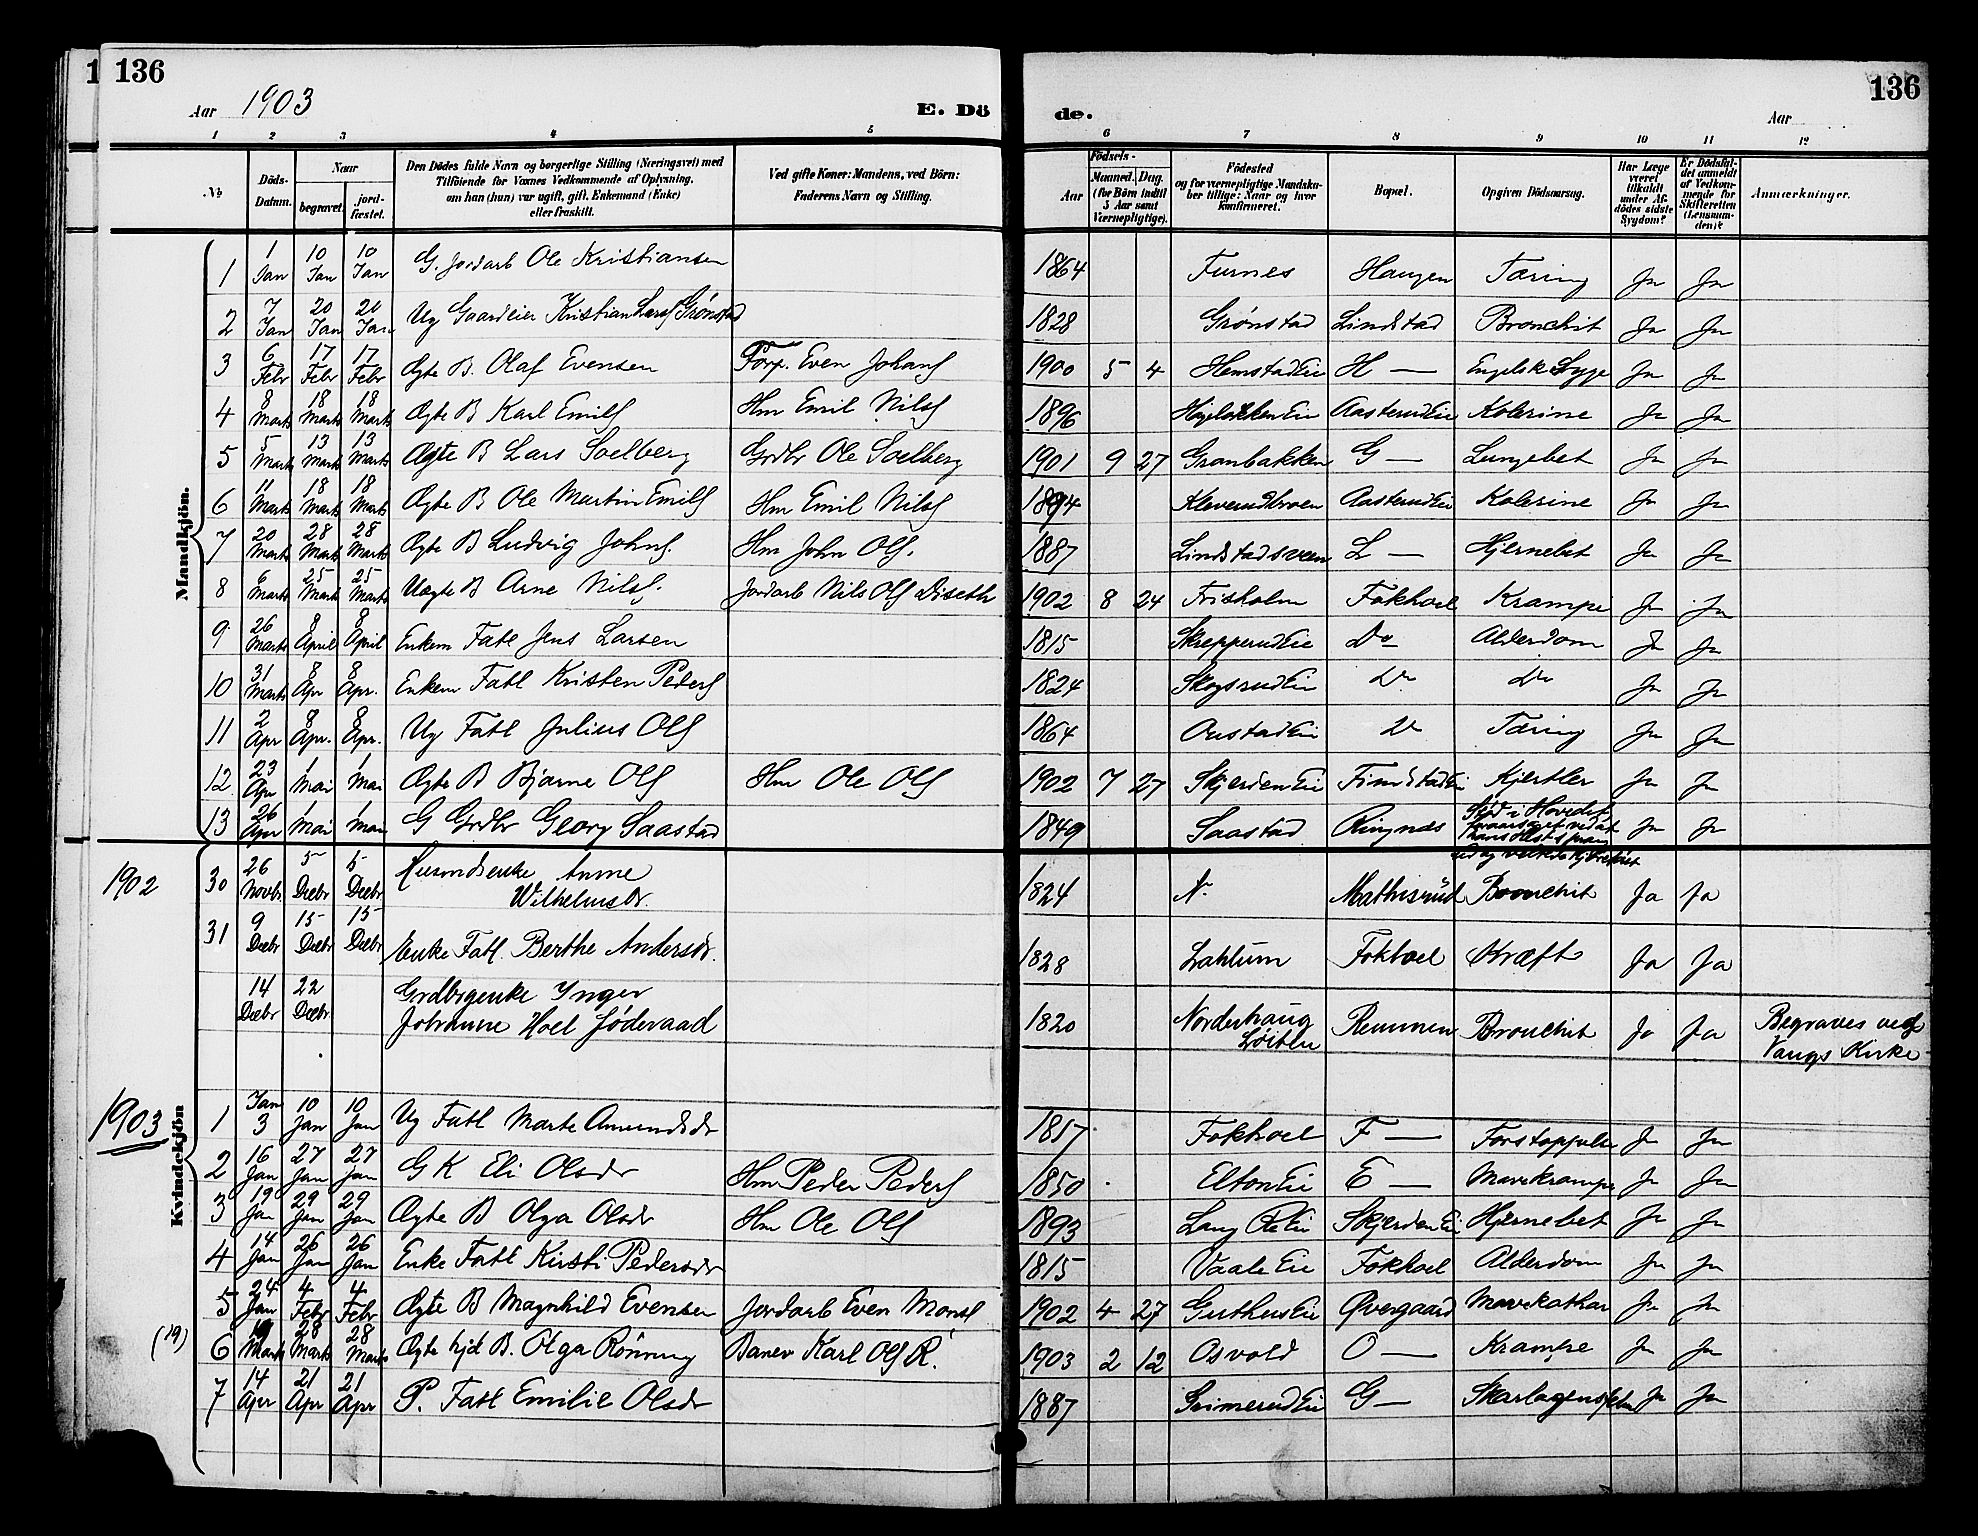 136
136
Aar 1903
E. Dö
de.
Aar
1 2 3 4 5 6 7 8 9 10 11 12
No
Döds-Datum.
Naar
begravet.
jord-fæstet.
Den Dödes fulde Navn og borgerlige Stilling (Næringsvei) med
Tilföiende for Voxnes Vedkommende af Oplysning,
om han (hun) var ugift, gift, Enkemand (Enke)
eller fraskilt.
Ved gifte Koner: Mandens, ved Börn:
Faderens Navn og Stilling.
Födsels-
Aar
Maaned. Dag.
(for Börn indtil
5 Aar samt
Værnepligtige).
Födested
og for værnepligtige Mandska-
ber tillige: Naar og hvor
konfirmeret.
Bopæl.
Opgiven Dödsaarsag.
Har Læge
været
tilkaldt
under Af-
dödes sidste
Sygdom?
Er Dödsfal-
det anmeldt
af Vedkom-
mende for
Skifteretten
(Lensman-
den)?
Anmærkninger.
Mandkjön.
1 1 Jan 10 Jan 10 Jan G. Jordarb Ole Kristiansen 1864 Furnes Haugen Tæring Ja Ja
2 7 Jan 20 Jan 20 Jan Ug Gaardeier Kristian Larsf Grønstad 1828 Grønstad Lindstad Bronchit Ja Ja
3 6 Febr 17 Febr 17 Febr Ægte B. Olaf Evensen Forp. Even Johans 1900 5 4 Hemstad Eie H — Engelsk Syge Ja Ja
4 8 Marts 18 Marts 18 Marts Ægte B Karl Emils Hm Emil Nils 1896 Aasterud Eie Kolerine Ja Ja
5 5 Marts 13 Marts 13 Marts Ægte B Lars Soelberg Grdbr Ole Soelberg 1901 9 27 Granbakken G — Lungebet Ja Ja
6 11 Marts 18 Marts 18 Marts Ægte B Ole Martin Emils Hm Emil Nils 1894 Kleverudbroen Aasterud Eie Kolerine Ja Ja
7 20 Marts 28 Marts 28 Marts Ægte B Ludvig Johns. Hm John Ols. 1887 Lindstadsveen L — Hjernebet Ja Ja
8 6 Marts 25 Marts 25 Marts Uægte B Arne Nils. Jordarb Nils Ols Diseth 1902 8 24 Frisholm Fokhoel Krampe Ja Ja
9 26 Marts 8 April 8 April Enkem Fatl Jens Larsen 1815 Skrepperud Eie Do Alderdom Ja Ja
10 31 Marts 8 Apr 8 Apr. Enkem Fatl Kristen Peders 1824 Skogsrud Eie Do Do Ja Ja
11 2 Apr 8 Apr. 8 Apr. Ug Fatl Julius Ols 1864 Do Tæring Ja Ja
12 23 Apr 1 Mai 1 Mai Ægte B Bjarne Ols Hm Ole Ols 1902 7 27 Skjerden Eie Finstad Ei Kjertler Ja Ja
13 26 Apr 1 Mai 1 Mai G Grdbr Georg Saastad 1849 Saastad Ringnæs Stød i Hovedet Ja Ja
1902
30 26 Novbr 5 Decbr 5 Decbr Husmdsenke Anne
Wilhelmsdr. 1824 Mathisrud Bronchit Ja Ja
31 9 Decbr 15 Decbr 15 Decbr Enke Fatl. Berthe Andersdr. 1828 Lahlum Fokhoel Kræft Ja Ja
14 Decbr 22 Decbr Grdbrgenke Inger
Johanne Hoel Jøderaad 1820 Norderhaug
Løiten Remmen Bronchit Ja Ja Begraves ved
Vangs Kirke
1903
Kvindekjön
1 Jan 3 10 Jan 10 Jan Ug Fatl Marte Amundsdr 1817 Fokhoel F — Forstoppelse Ja Ja
2 16 Jan 27 Jan 27 Jan G K Eli Olsdr Hm Peder Peders 1850 Elton Eie E — Mavekrampe Ja Ja
3 19 Jan 29 Jan 29 Jan Ægte B Olga Olsdr Hm Ole Ols 1893 Skjerden Ei Hjernebet Ja Ja
4 14 Jan 26 Jan 26 Jan Enke Fatl Kirsti Pedersdr 1815 Vaale Eie Fokhoel Alderdom Ja Ja
5 24 Jan 4 Febr 4 Febr Ægte B Magnhild Evensen Jordarb Even Mons 1902 4 27 Guthus Eie Øvergaard Mavekathar Ja Ja
(19) 6 19 Marts 28 Marts 28 Marts Ægte hjd B. Olga Rönning Banev Karl Ols R. 1903 2 12 Osvold O — Krampe Ja Ja
7 14 Apr 21 Apr 21 Apr P. Fatl Emilie Olsdr 1887 Grimerud Eie G — Skarlagensfeber Ja Ja